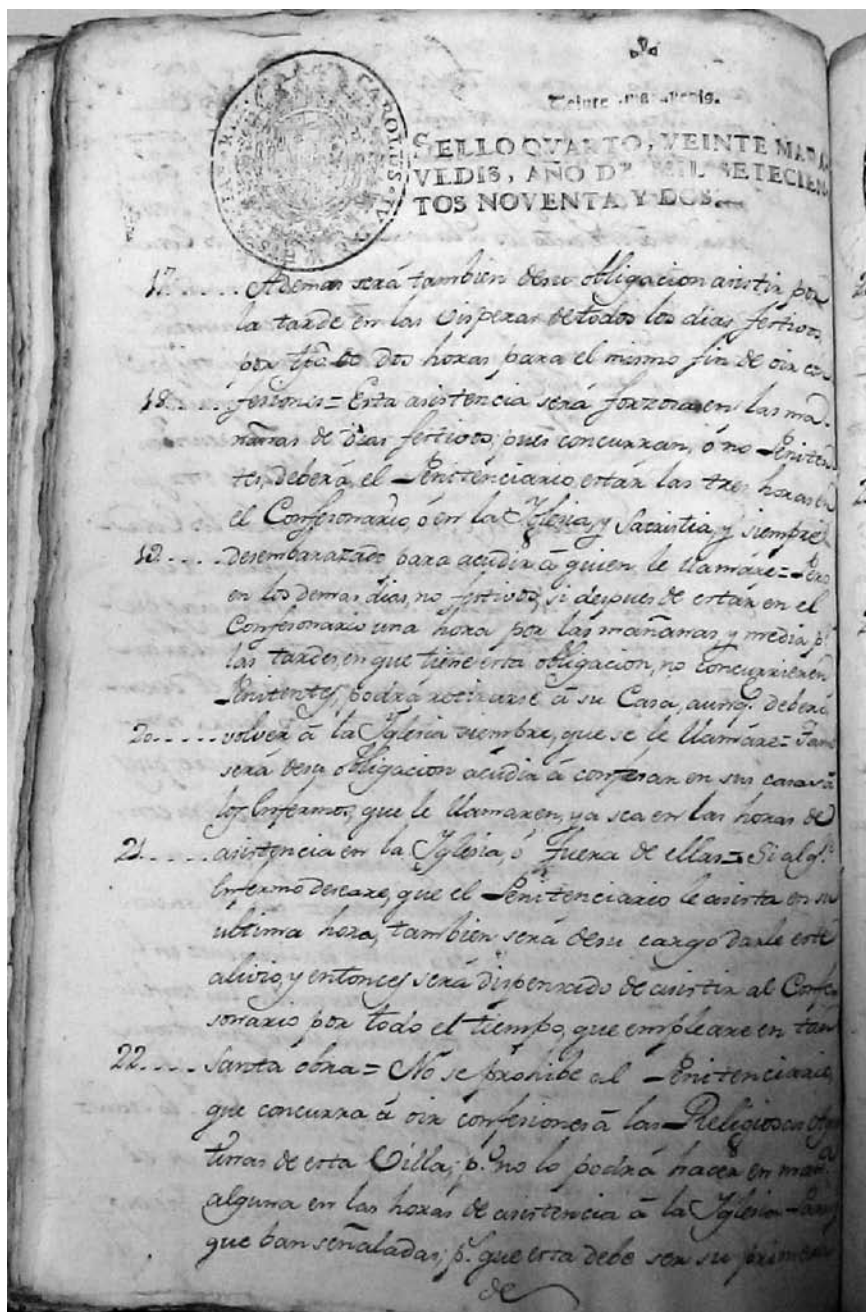 CAROLUS IV
SELLO QVARTO, VEINTE MARA
VEDIS, AÑO DE MIL SETECIEN
TOS NOVENTA Y DOS.
17..... Ademas será tambien desu obligacion asistir por
la tarde en las Visperas de todos los dias festivos,
por tpo de dos horas para el mismo fin de oir con
18..... fesiones = Esta asistencia será forzosa en las ma
ñanas de dias festivos; pues concurran, ó no Peniten
tes, deberá el Penitenciario estár las tres horas en
el Confesonario, ó en la Yglesia, y Sacristia, y siempre
19..... desembarazado para acudir á quien le llamáre = Pero
en los demas dias, no festivos, si despues de estár en el
Confesonario una hora por las mañanas, y media pr.
las tardes, en que tiene esta obligacion, no concurrieren
Penitentes, podrá retirarse á su Casa, aunq. deberá
20..... volver á la Yglesia siempre, que se le llamáre = Tam
será desu obligacion acudir á confesar en sus casas á
los Enfermos, que le llamaren, ya sea en las horas de
21..... asistencia en la Yglesia, ó fuera de ellas = Si algn.
Enfermo deseare, que el Penitenciario le asista en su
última hora, tambien será desu cargo darle este
alivio, y entonces será dispensado de asistir al Confe
sonario por todo el tiempo, que empleare en tan
22..... santa obra = No se prohibe al Penitenciario,
que concurra á oir confesiones á las Religiosas
de esta Villa; po. no lo podrá hacer en manra.
alguna en las horas de asistencia á la Yglesia
que ban señaladas; pr. que esta debe ser su primera
de